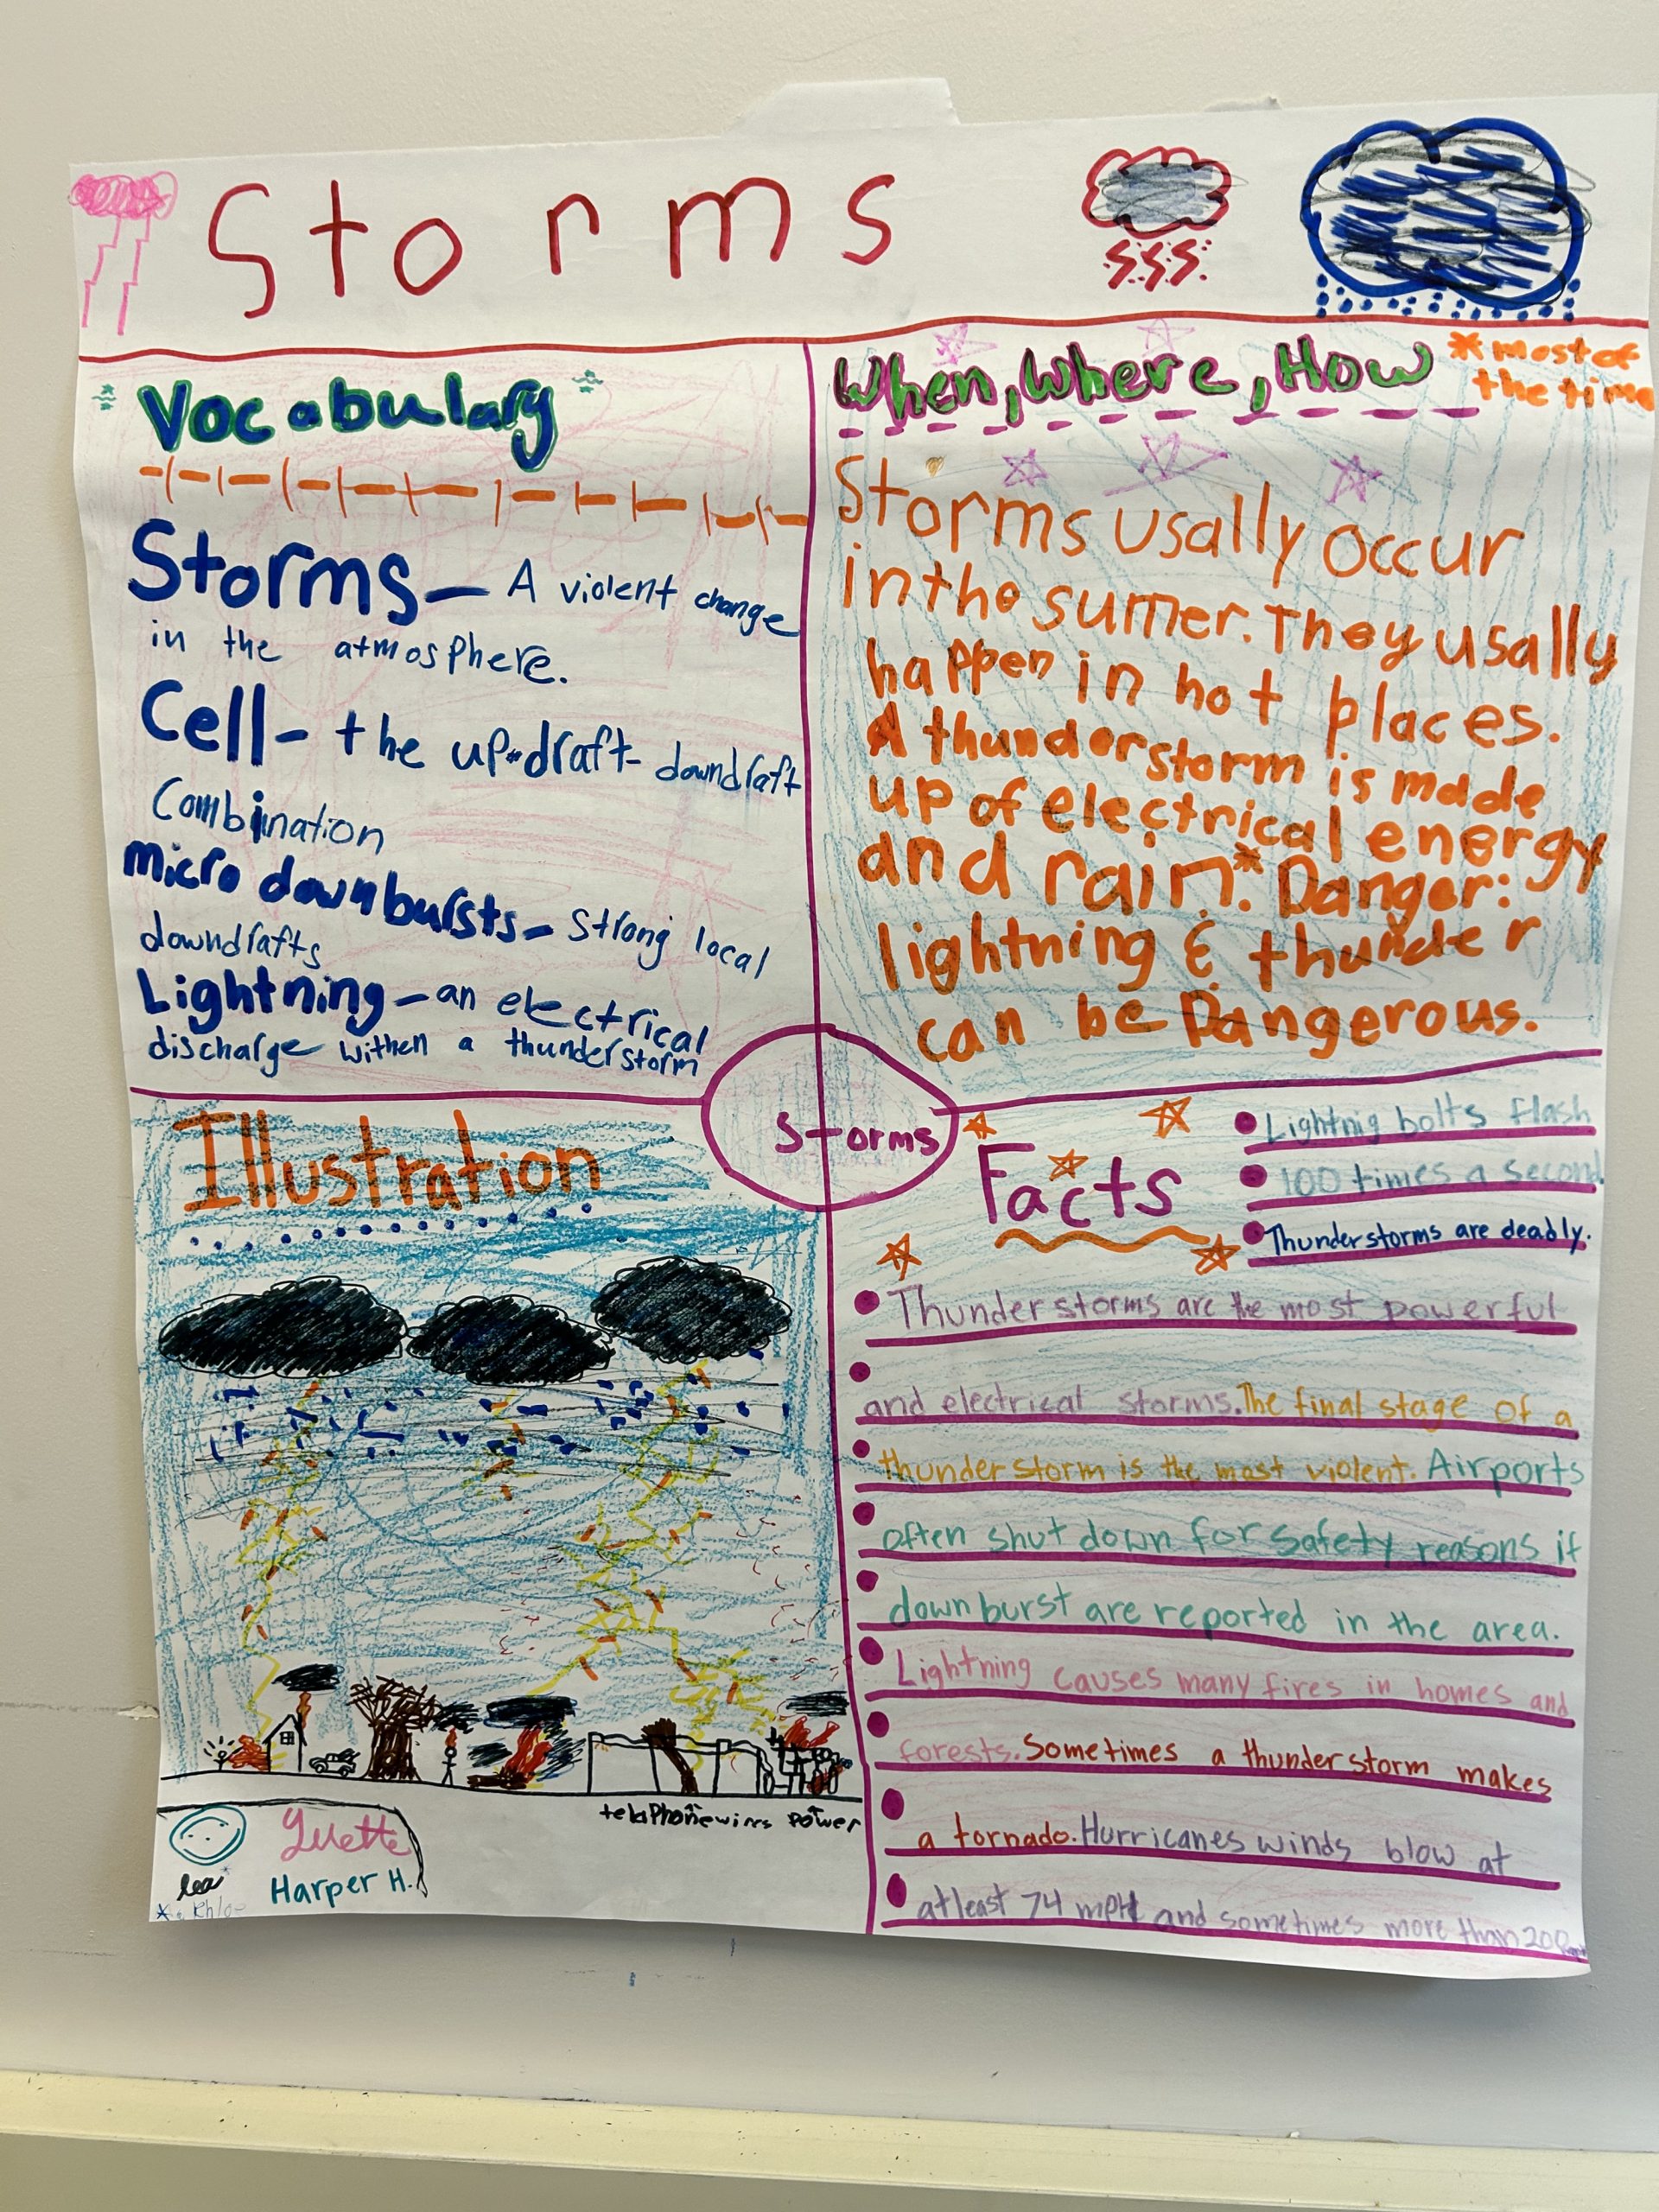 Storms
Vocabulary
Storms - A violent change
in the atmosphere.
Cell - the up-draft-downdraft
Combination
micro downbursts - Strong local
downdrafts
Lightning - an electrical
discharge withen a thunderstorm
When, Where, How
*most of
the time
Storms usally occur
in the sumer. They usally
happen in hot places.
A thunderstorm is made
up of electrical energy
and rain.* Danger:
lightning & thunder
can be Dangerous.
Storms
Illustration
telaphonewirs power
Yvette
lea
Harper H.
Khloe
Facts
Lightnig bolts flash
100 times a second.
Thunderstorms are deadly.
Thunderstorms are the most powerful
and electrical storms. The final stage of a
thunderstorm is the most violent. Airports
often shut down for safety reasons if
downburst are reported in the area.
Lightning causes many fires in homes and
forests. Sometimes a thunderstorm makes
a tornado. Hurricanes winds blow at
atleast 74 mpH and sometimes more than 200